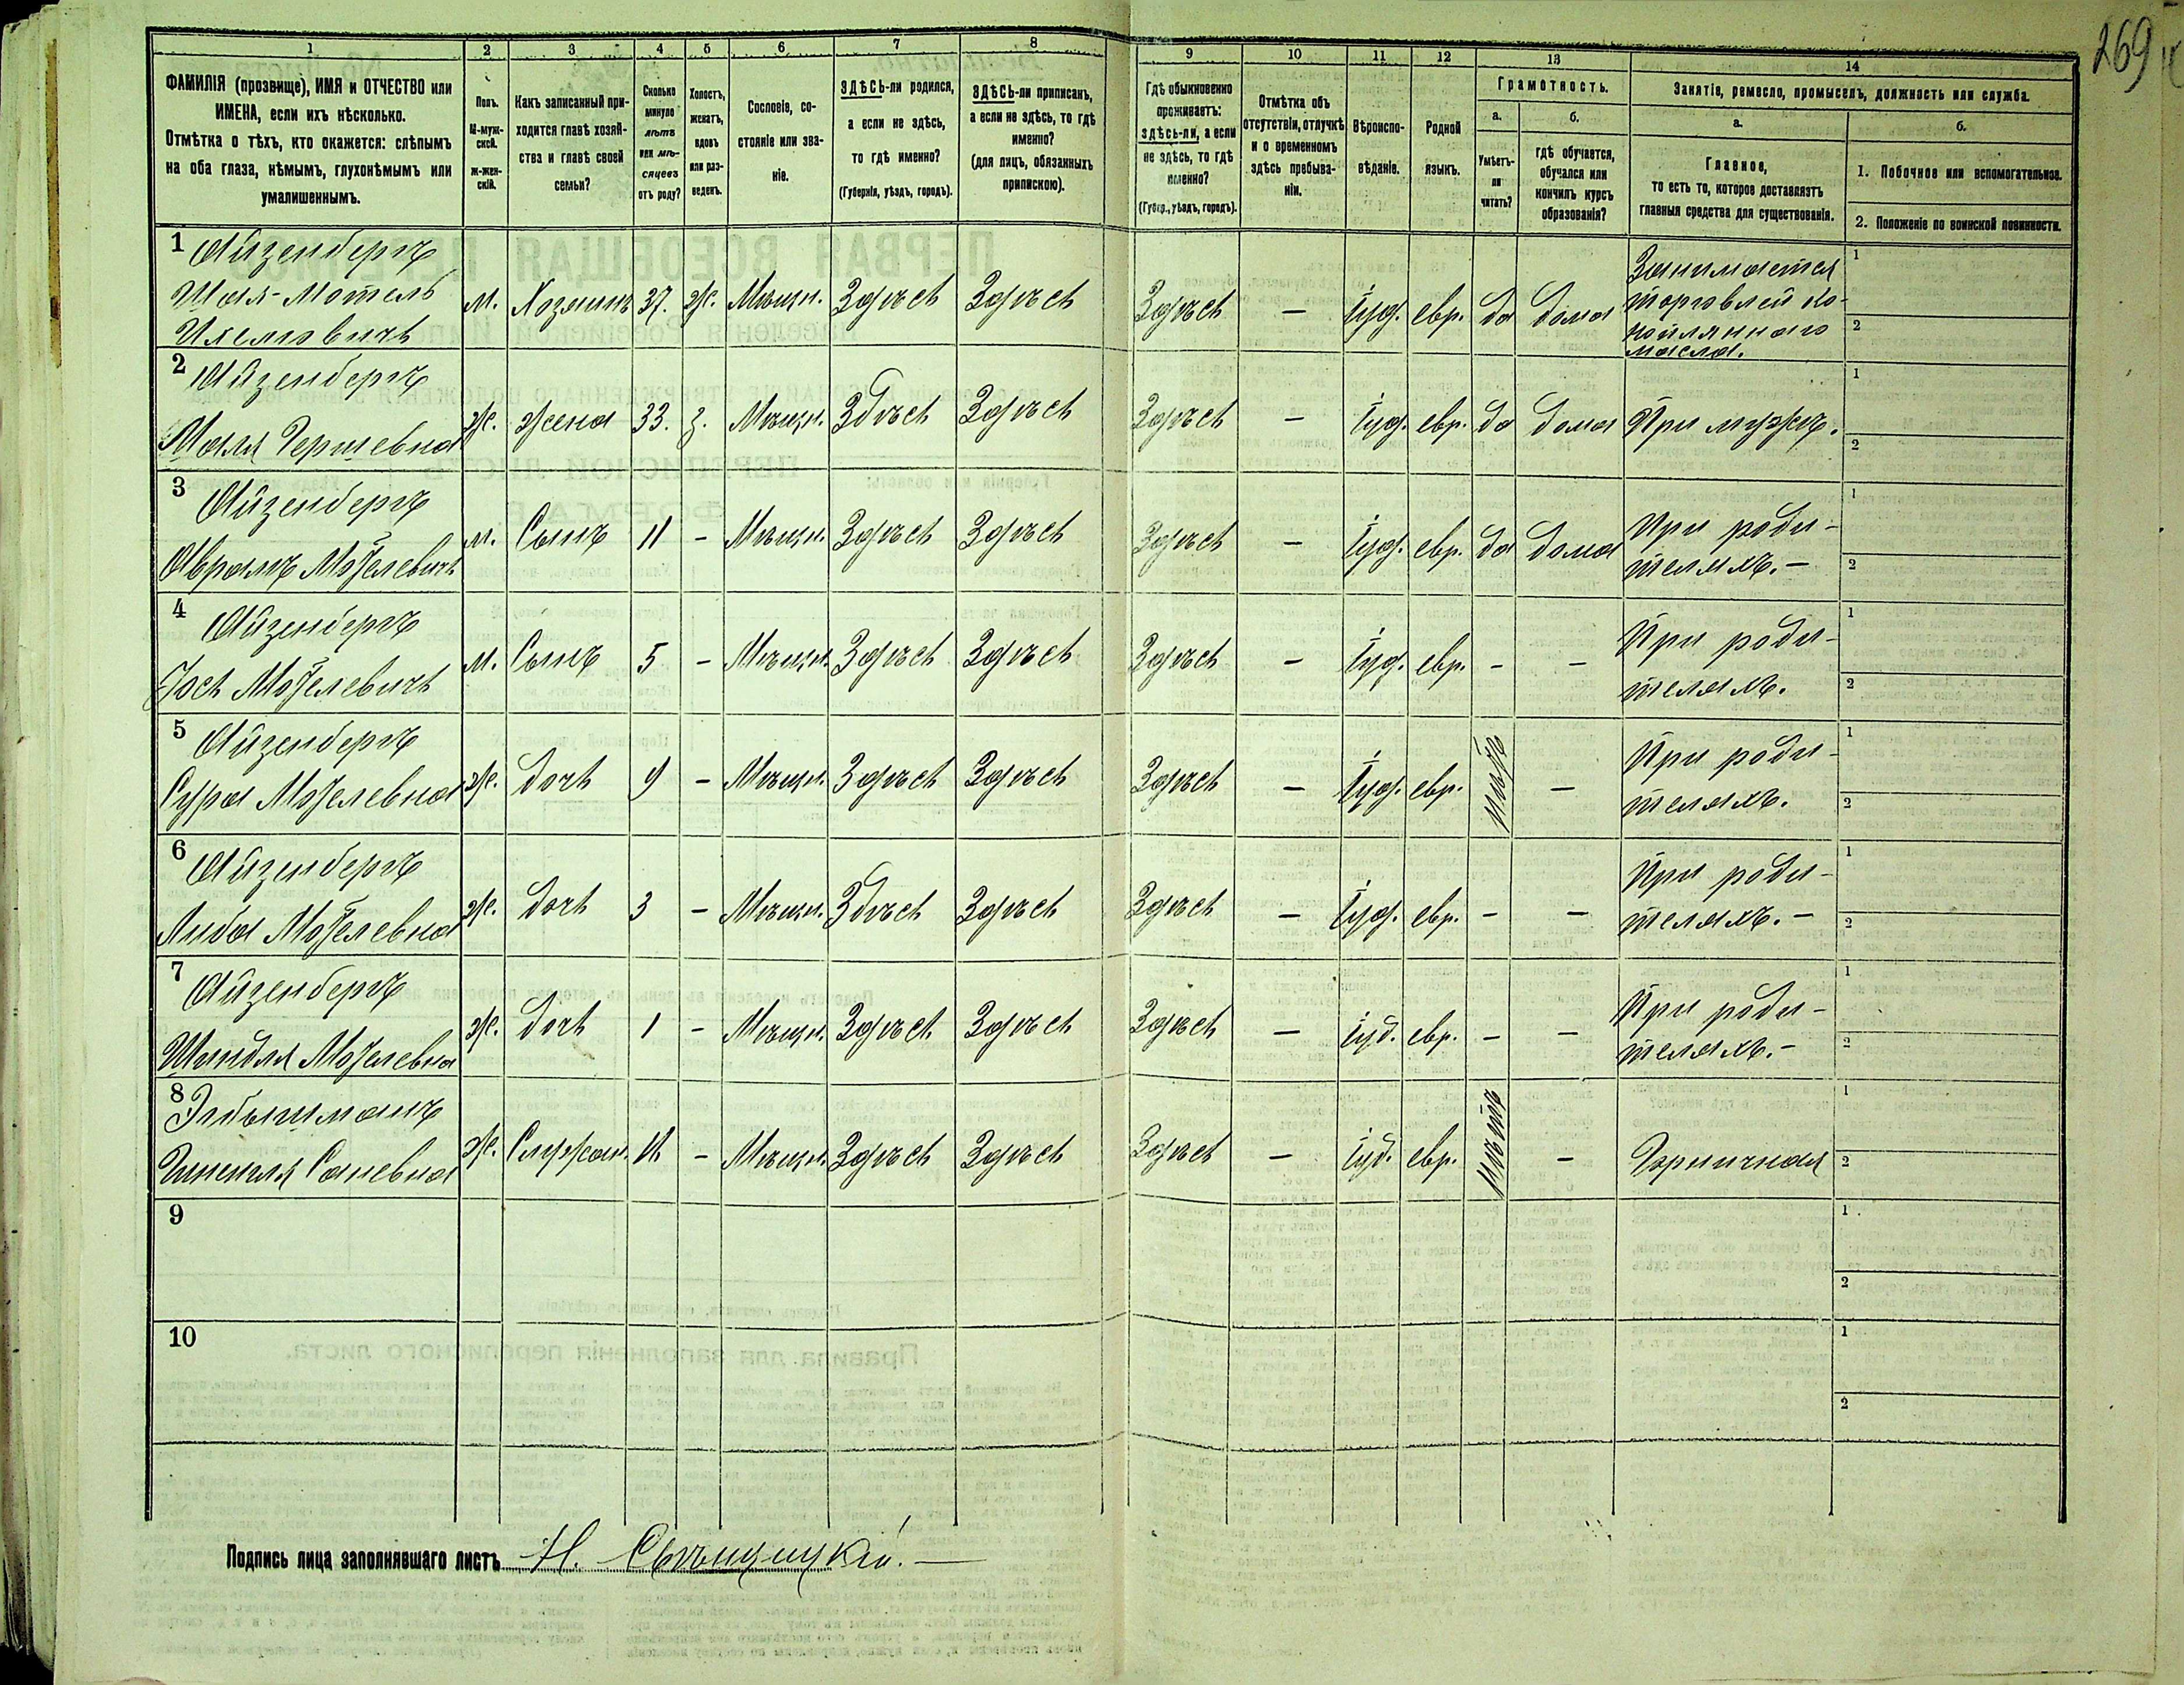 269
1 2 3 4 5 6 7 8 9 10 11 12 13 14
ФАМИЛІЯ (прозвище), ИМЯ и ОТЧЕСТВО или ИМЕНА, если ихъ нѣсколько.
Отмѣтка о тѣхъ, кто окажется: слѣпымъ на оба глаза, нѣмымъ, глухонѣмымъ или умалишеннымъ.
Полъ. М-мужской. Ж-женскій.
Какъ записанный приходится главѣ хозяйства и главѣ своей семьи?
Сколько минуло лѣтъ или мѣсяцевъ отъ роду?
Холостъ, женатъ, вдовъ или разведенъ.
Сословіе, состояніе или званіе.
ЗДѢСЬ-ли родился, а если не здѣсь, то гдѣ именно? (Губернія, уѣздъ, городъ).
ЗДѢСЬ-ли приписанъ, а если не здѣсь, то гдѣ именно? (для лицъ, обязанныхъ припискою).
Гдѣ обыкновенно проживаетъ: здѣсь-ли, а если не здѣсь, то гдѣ именно? (Губер., уѣздъ, городъ).
Отмѣтка объ отсутствіи, отлучкѣ и о временномъ здѣсь пребываніи.
Вѣроисповѣданіе.
Родной языкъ.
Грамотность.
а. Умѣетъ-ли читать?
б. гдѣ обучается, обучался или кончилъ курсъ образованія?
Занятіе, ремесло, промыселъ, должность или служба.
а. Главное, то есть то, которое доставляетъ главныя средства для существованія.
б.
1. Побочное или вспомогательное.
2. Положеніе по воинской повинности.
1 Айзенбергъ Шая-Мотель м. Хозяинъ 37. ж. Мѣщн. Здѣсь Здѣсь Здѣсь – Іуд. евр. да дома Занимается торговлей масла. 1 2
2 Айзенбергъ Маля Гершевна ж. жена 33. з. Мѣщн. Здѣсь Здѣсь Здѣсь – Іуд. евр. да дома При мужѣ. 1 2
3 Айзенбергъ Аврамъ Мотелевичъ м. Сынъ 11 – Мѣщн. Здѣсь Здѣсь Здѣсь – Іуд. евр. да дома При родителяхъ. – 1 2
4 Айзенбергъ Іось Мотелевичъ м. Сынъ 5 – Мѣщн. Здѣсь Здѣсь Здѣсь – Іуд. евр. – – При родителяхъ. 1 2
5 Айзенбергъ Сура Мотелевна ж. дочь 9 – Мѣщн. Здѣсь Здѣсь Здѣсь – Іуд. евр. нѣтъ – При родителяхъ. 1 2
6 Айзенбергъ Либа Мотелевна ж. дочь 3 – Мѣщн. Здѣсь Здѣсь Здѣсь – Іуд. евр. – – При родителяхъ. – 1 2
7 Айзенбергъ Шендля Мотелевна ж. дочь 1 – Мѣщн. Здѣсь Здѣсь Здѣсь – Іуд. евр. – – При родителяхъ. – 1 2
8 ж. Служан. – Мѣщн. Здѣсь Здѣсь Здѣсь – Іуд. евр. нѣтъ – Горничная 1 2
9 1 2
10 1 2
Подпись лица заполнявшаго листъ Н.